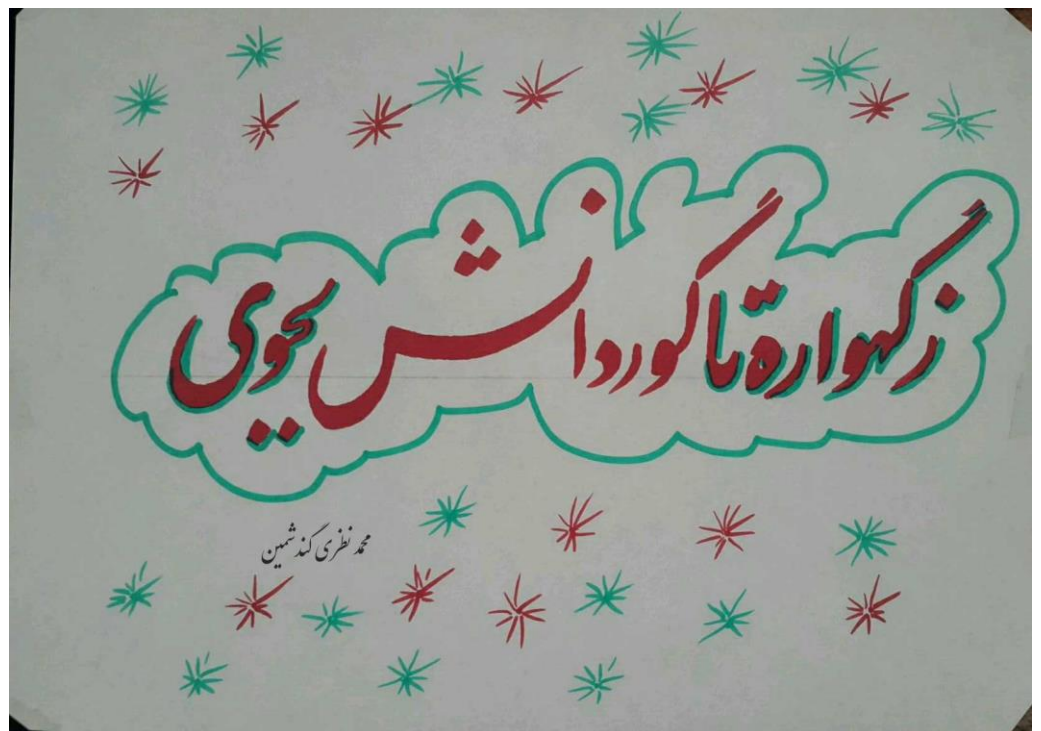 ز گهوارة تا گور دانش بجوی
محمد نظری گندشمین